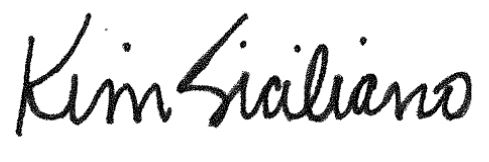 Kim Siciliano